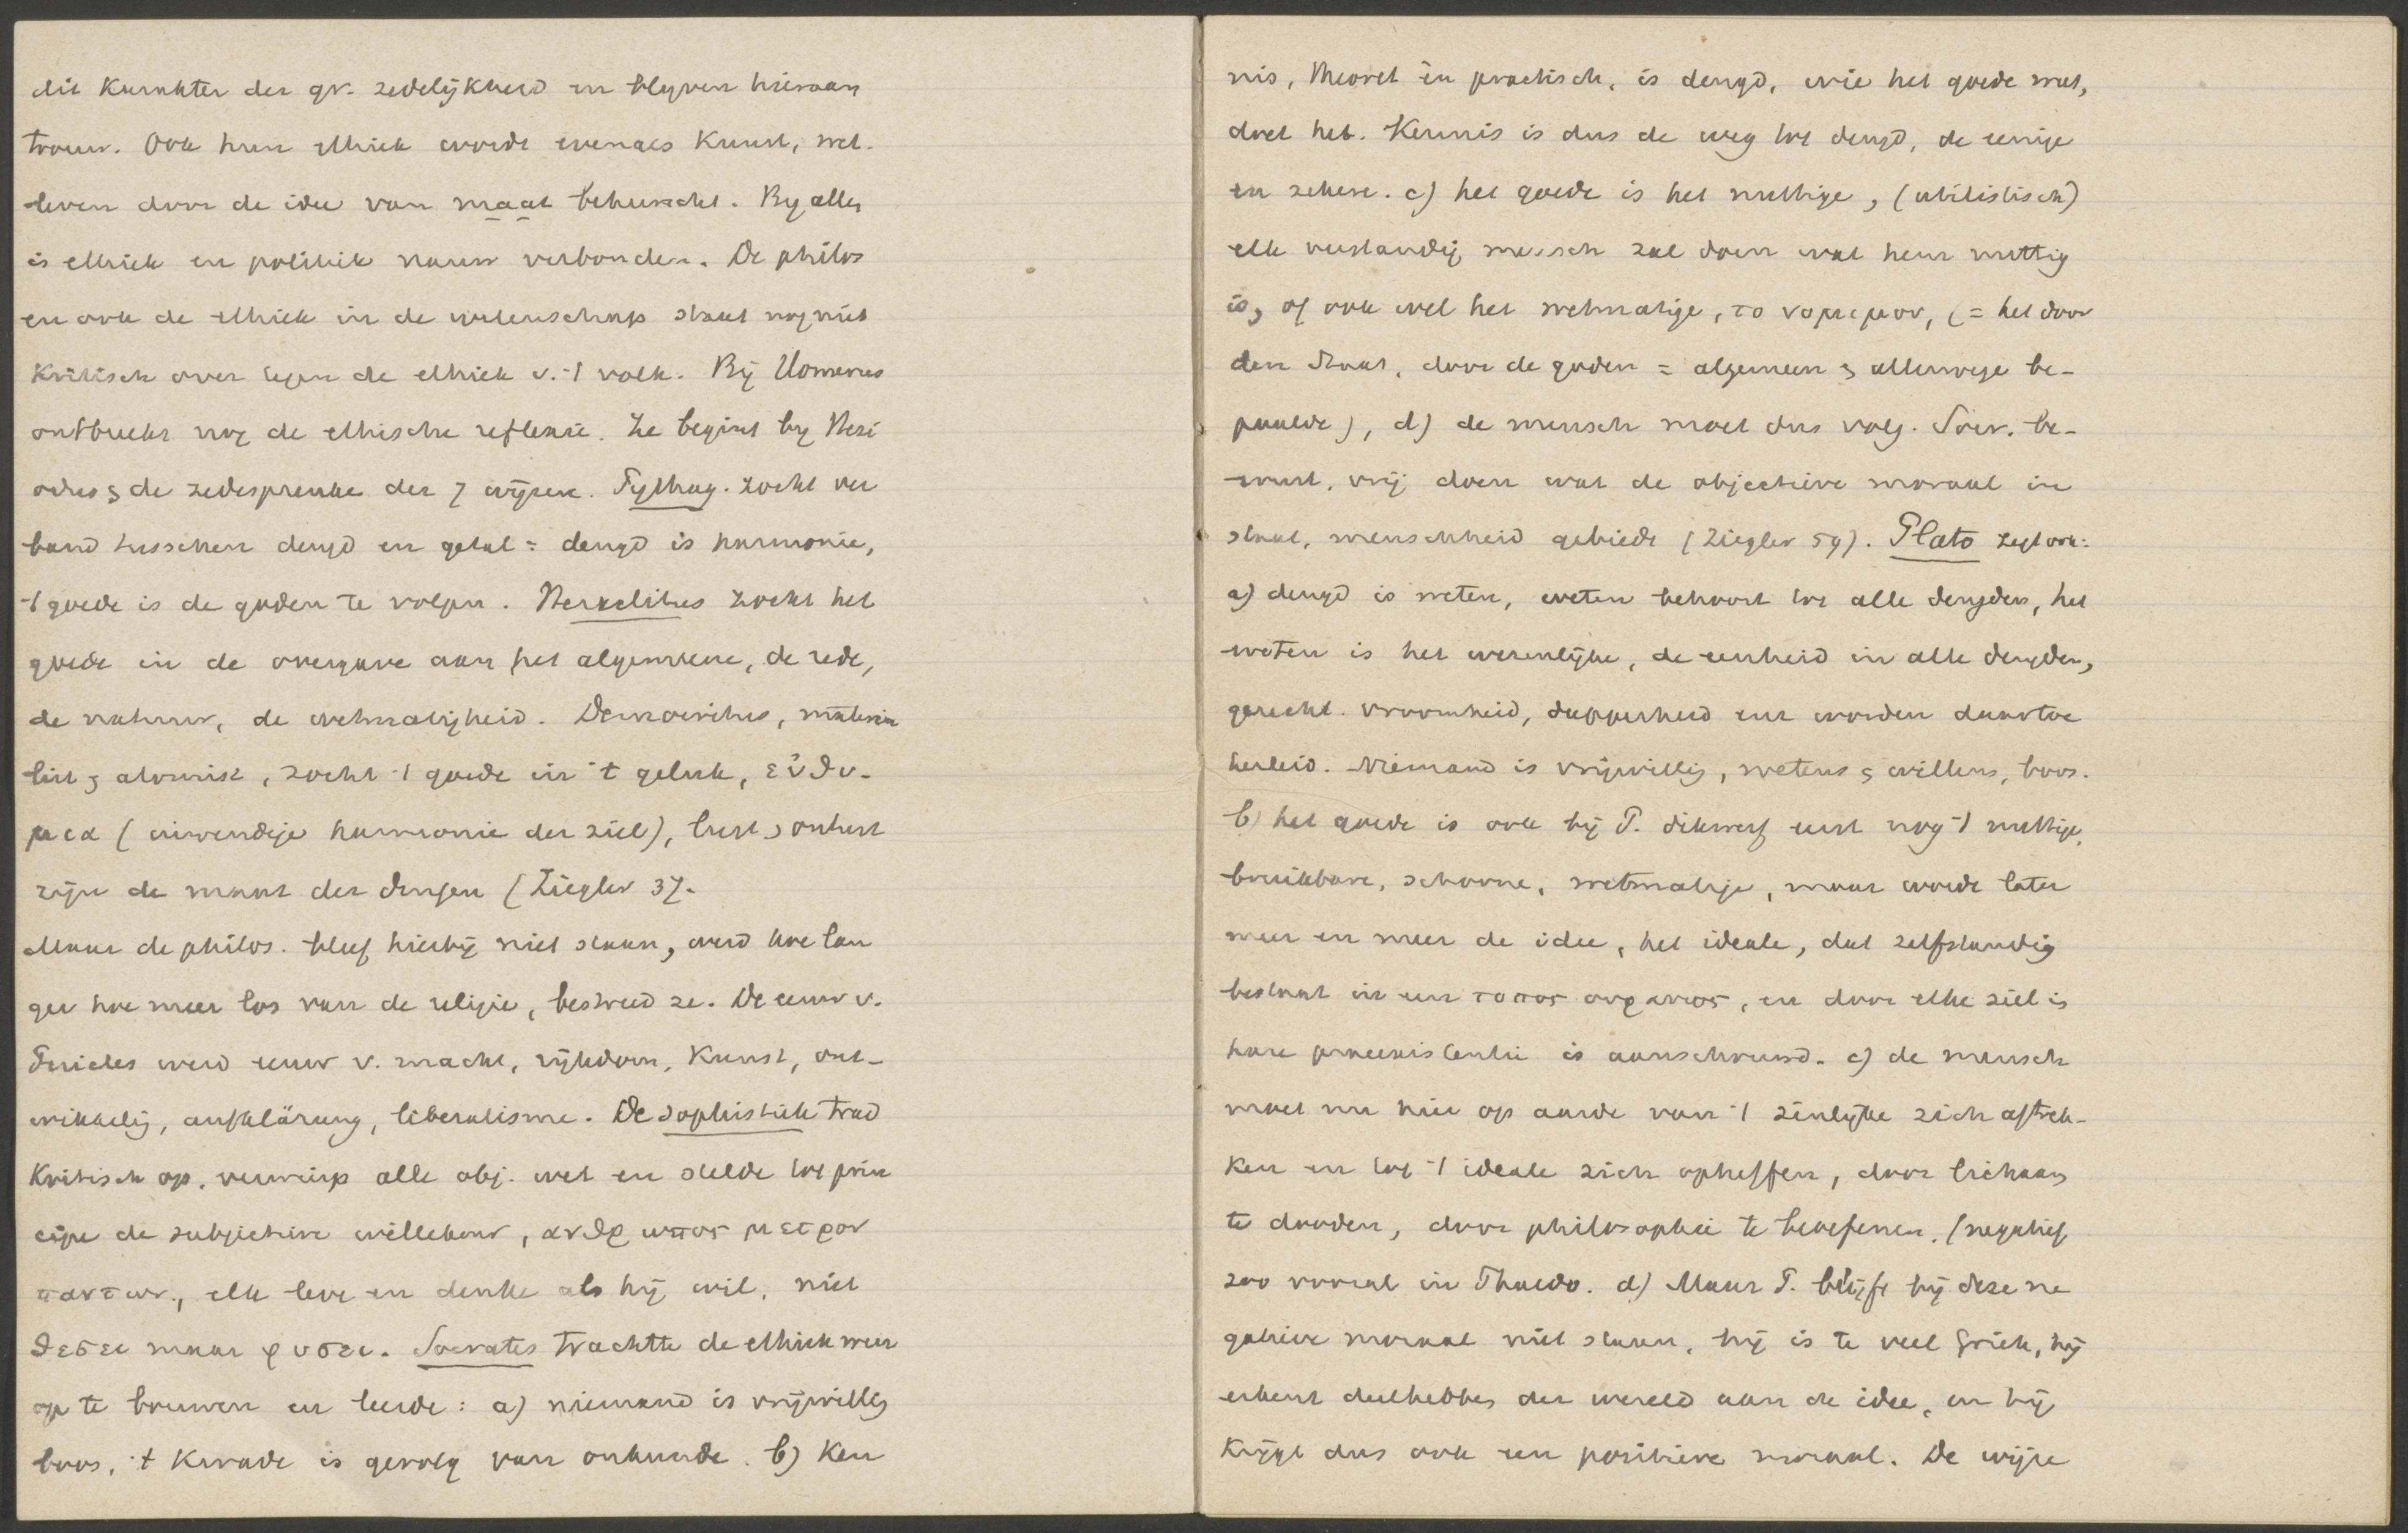 dit karakter der gr. zedelijkheid en blijven hieraan
trouw. Ook hun ethiek wordt evenals kunst, wet.
leven door de idee van maat beheerscht. By alles
is ethiek en politiek nauw verbonden. De philos
en ook de ethiek in de wetenschap staat nog niet
kritisch over tegen de ethiek v. 't volk. Bij Homerus
ontbreekt nog de ethische reflexie. Ze begint by Hesi
odus & de zedespreuke der 7 wijzen. Pythag. zocht ver
band tusschen deugd en getal = deugd is harmonie,
't goede is de goden te volgen. Heraclitus zocht het
goede in de overgave aan het algemeene, de rede,
de natuur, de wetmatigheid. Democritus, materia
list & atomist, zocht 't goede in 't geluk, εὐθυ-
μια (inwendige harmonie der ziel), lust & onlust
zijn de maat der dingen (Ziegler 37.
Maar de philos. bleef hierbij niet staan, werd hoe lan
ger hoe meer los van de religie, bestreed ze. De eeuw v.
Pericles werd eeuw v. macht, rijkdom, kunst, ont-
wikkelig, aufklärung, liberalisme. De sophistiek trad
kritisch op, verwierp alle obj. wet en stelde tot prin
cipe de subjectieve willekeur, ανθρωπος μετρον
παντων, elk leve en denke als hij wil, niet
θεσει maar φυσει. Socrates trachtte de ethiek weer
op te bouwen en leerde: a) niemand is vrijwillig
boos, 't kwade is gevolg van onkunde. b) Ken
nis, theoret en practisch, is deugd, wie het goede weet,
doet het. Kennis is dus de weg tot deugd, de eenige
en zekere. c) het goede is het nuttige, (utilistisch)
elk verstandig mensch zal doen wat hem nuttig
is, of ook wel het wetmatige, το νομιμον, (= het door
den staat, door de goden = algemeen & allerwege be-
paalde), d) de mensch moet dus volg. Socr. be-
wust, vrij doen wat de objectieve moraal in
staat, menschheid gebiedt (Ziegler 59). Plato zegt ook:
a) deugd is weten, weten behoort tot alle deugden, het
weten is het wezenlijke, de eenheid in alle deugden,
gerecht. vroomheid, dapperheid enz worden daartoe
herleid. Niemand is vrijwillig, wetens & willens, boos.
b) het goede is ook bij P. dikwerf eerst nog 't nuttige,
bruikbare, schoone, wetmatige, maar wordt later
meer en meer de idee, het ideale, dat zelfstandig
bestaat in een τοπος ουρανιος, en door elke ziel is
hare praeexistentie is aanschouwd. c) de mensch
moet nu hier op aarde van 't zinlijke zich aftrek-
ken en tot 't ideale zich opheffen, door lichaam
te dooden, door philosophie te beoefenen. (negatief
zoo vooral in Phaedo. d) Maar P. blijft bij deze ne
gatieve moraal niet staan, hij is te veel Griek, hij
erkent deelhebbes der wereld aan de idee, en hij
krijgt dus ook een positieve moraal. De wijze